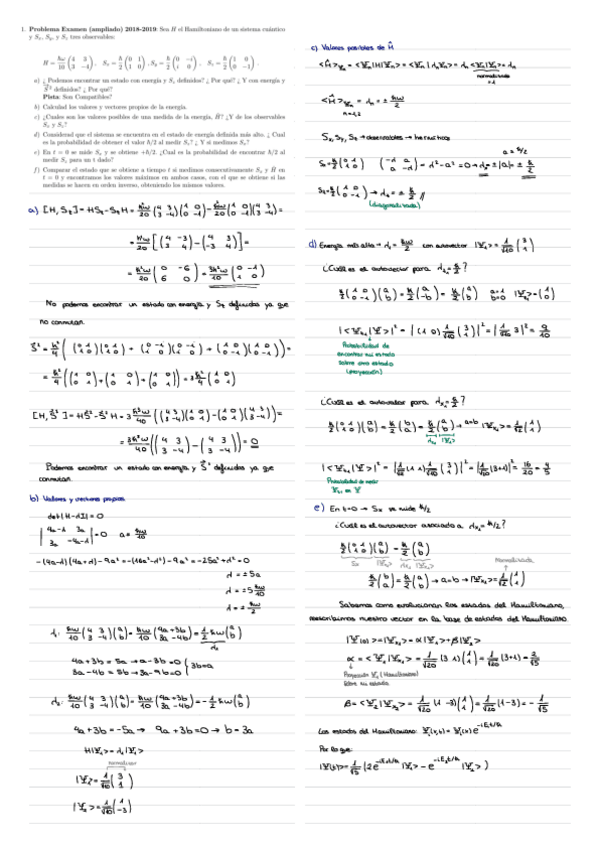 1. Problema Examen (ampliado) 2018-2019: Sea H el Hamiltoniano de un sistema cuántico
y Sₓ, Sᵧ, y S_z tres observables:
H = ħω/10 (4 3; 3 −4), Sₓ = ħ/2 (0 1; 1 0), Sᵧ = ħ/2 (0 −i; i 0), S_z = ħ/2 (1 0; 0 −1).
a) ¿ Podemos encontrar un estado con energía y S_z definidos? ¿ Por qué? ¿ Y con energía y
S⃗² definidos? ¿ Por qué?
Pista: Son Compatibles?
b) Calculad los valores y vectores propios de la energía.
c) ¿Cuales son los valores posibles de una medida de la energía, H? ¿Y de los observables
Sₓ y S_z?
d) Considerad que el sistema se encuentra en el estado de energía definida más alto. ¿ Cual
es la probabilidad de obtener el valor ħ/2 al medir S_z? ¿ Y si medimos Sₓ?
e) En t = 0 se mide Sₓ y se obtiene +ħ/2. ¿Cual es la probabilidad de encontrar ħ/2 al
medir Sₓ para un t dado?
f) Comparar el estado que se obtiene a tiempo t si medimos consecutivamente Sₓ y H en
t = 0 y encontramos los valores máximos en ambos casos, con el que se obtiene si las
medidas se hacen en orden inverso, obteniendo los mismos valores.
a) [H, S_z] = HS_z − S_zH = ħ²ω/20 (4 3; 3 −4)(1 0; 0 −1) − ħ²ω/20 (1 0; 0 −1)(4 3; 3 −4) =
= ħ²ω/20 [(4 −3; 3 4) − (4 3; −3 4)] =
= ħ²ω/20 (0 −6; 6 0) = 3ħ²ω/10 (0 −1; 1 0)
No podemos encontrar un estado con energía y S_z definidos ya que
no conmutan.
[H, S⃗²] = HS⃗² − S⃗²H = 3ħ³ω/40 ((4 3; 3 −4)(1 0; 0 1) − (1 0; 0 1)(4 3; 3 −4)) =
= 3ħ³ω/40 ((4 3; 3 −4) − (4 3; 3 −4)) = 0
Podemos encontrar un estado con energía y S⃗² definidos ya que
conmutan.
b) Valores y vectores propios
det(H−λI) = 0
|4a−λ 3a; 3a −4a−λ| = 0 a = ħω/10
−(4a−λ)(4a+λ) − 9a² = −(16a²−λ²) − 9a² = −25a² + λ² = 0
λ = ±5a
λ = ±5 ħω/10
λ = ± ħω/2
λ₁: ħω/10 (4 3; 3 −4)(a; b) = ħω/10 (4a+3b; 3a−4b) = 1/2 ħω (a; b)
4a + 3b = 5a → a − 3b = 0
3a − 4b = 5b → 3a − 9b = 0 } 3b = a
λ₂: ħω/10 (4 3; 3 −4)(a; b) = ħω/10 (4a+3b; 3a−4b) = −1/2 ħω (a; b)
4a + 3b = −5a → 9a + 3b = 0 → b = 3a
normalizar
c) Valores posibles de Ĥ
normalizado
=1
Sₓ, Sᵧ, S_z → observables → herméticos
(diagonalizada)
d) Energía más alta → λ₁ = ħω/2 con autovector |Ψ₁> = 1/√10 (3; 1)
¿Cuál es el autovector para λ_z = ħ/2?
ħ/2 (1 0; 0 −1)(a; b) = ħ/2 (a; −b) = ħ/2 (a; b) a=1 b=0 |Ψ_z> = (1; 0)
= |(1 0) 1/√10 (3; 1)|² = |1/√10 3|² = 9/10
Probabilidad de
encontrar mi estado
sobre otro estado
(proyección)
ħ/2 (0 1; 1 0)(a; b) = ħ/2 (b; a) = ħ/2 (a; b) → a=b
= |1/√2 (1 1) 1/√10 (3; 1)|² = |1/√20 (3+1)|² = 16/20 = 4/5
Probabilidad de medir
e) En t=0 → Sₓ se mide ħ/2
¿Cuál es el autovector asociado a λₓ = ħ/2?
Normalizado
Sabemos como evolucionan los estados del Hamiltoniano,
reescribimos nuestro vector en la base de estados del Hamiltoniano.
= 1/√20 (3 1)(1; 1) = 1/√20 (3+1) = 2/√5
= 1/√20 (1 −3)(1; 1) = 1/√20 (1−3) = −1/√5
Los estados del Hamiltoniano: Ψ(x,t) = Ψ(x) e^(−iEt/ħ)
Por lo que:
|Ψ(t)> = 1/√5 (2e^(−iE₁t/ħ) |Ψ₁> − e^(−iE₂t/ħ) |Ψ₂>)